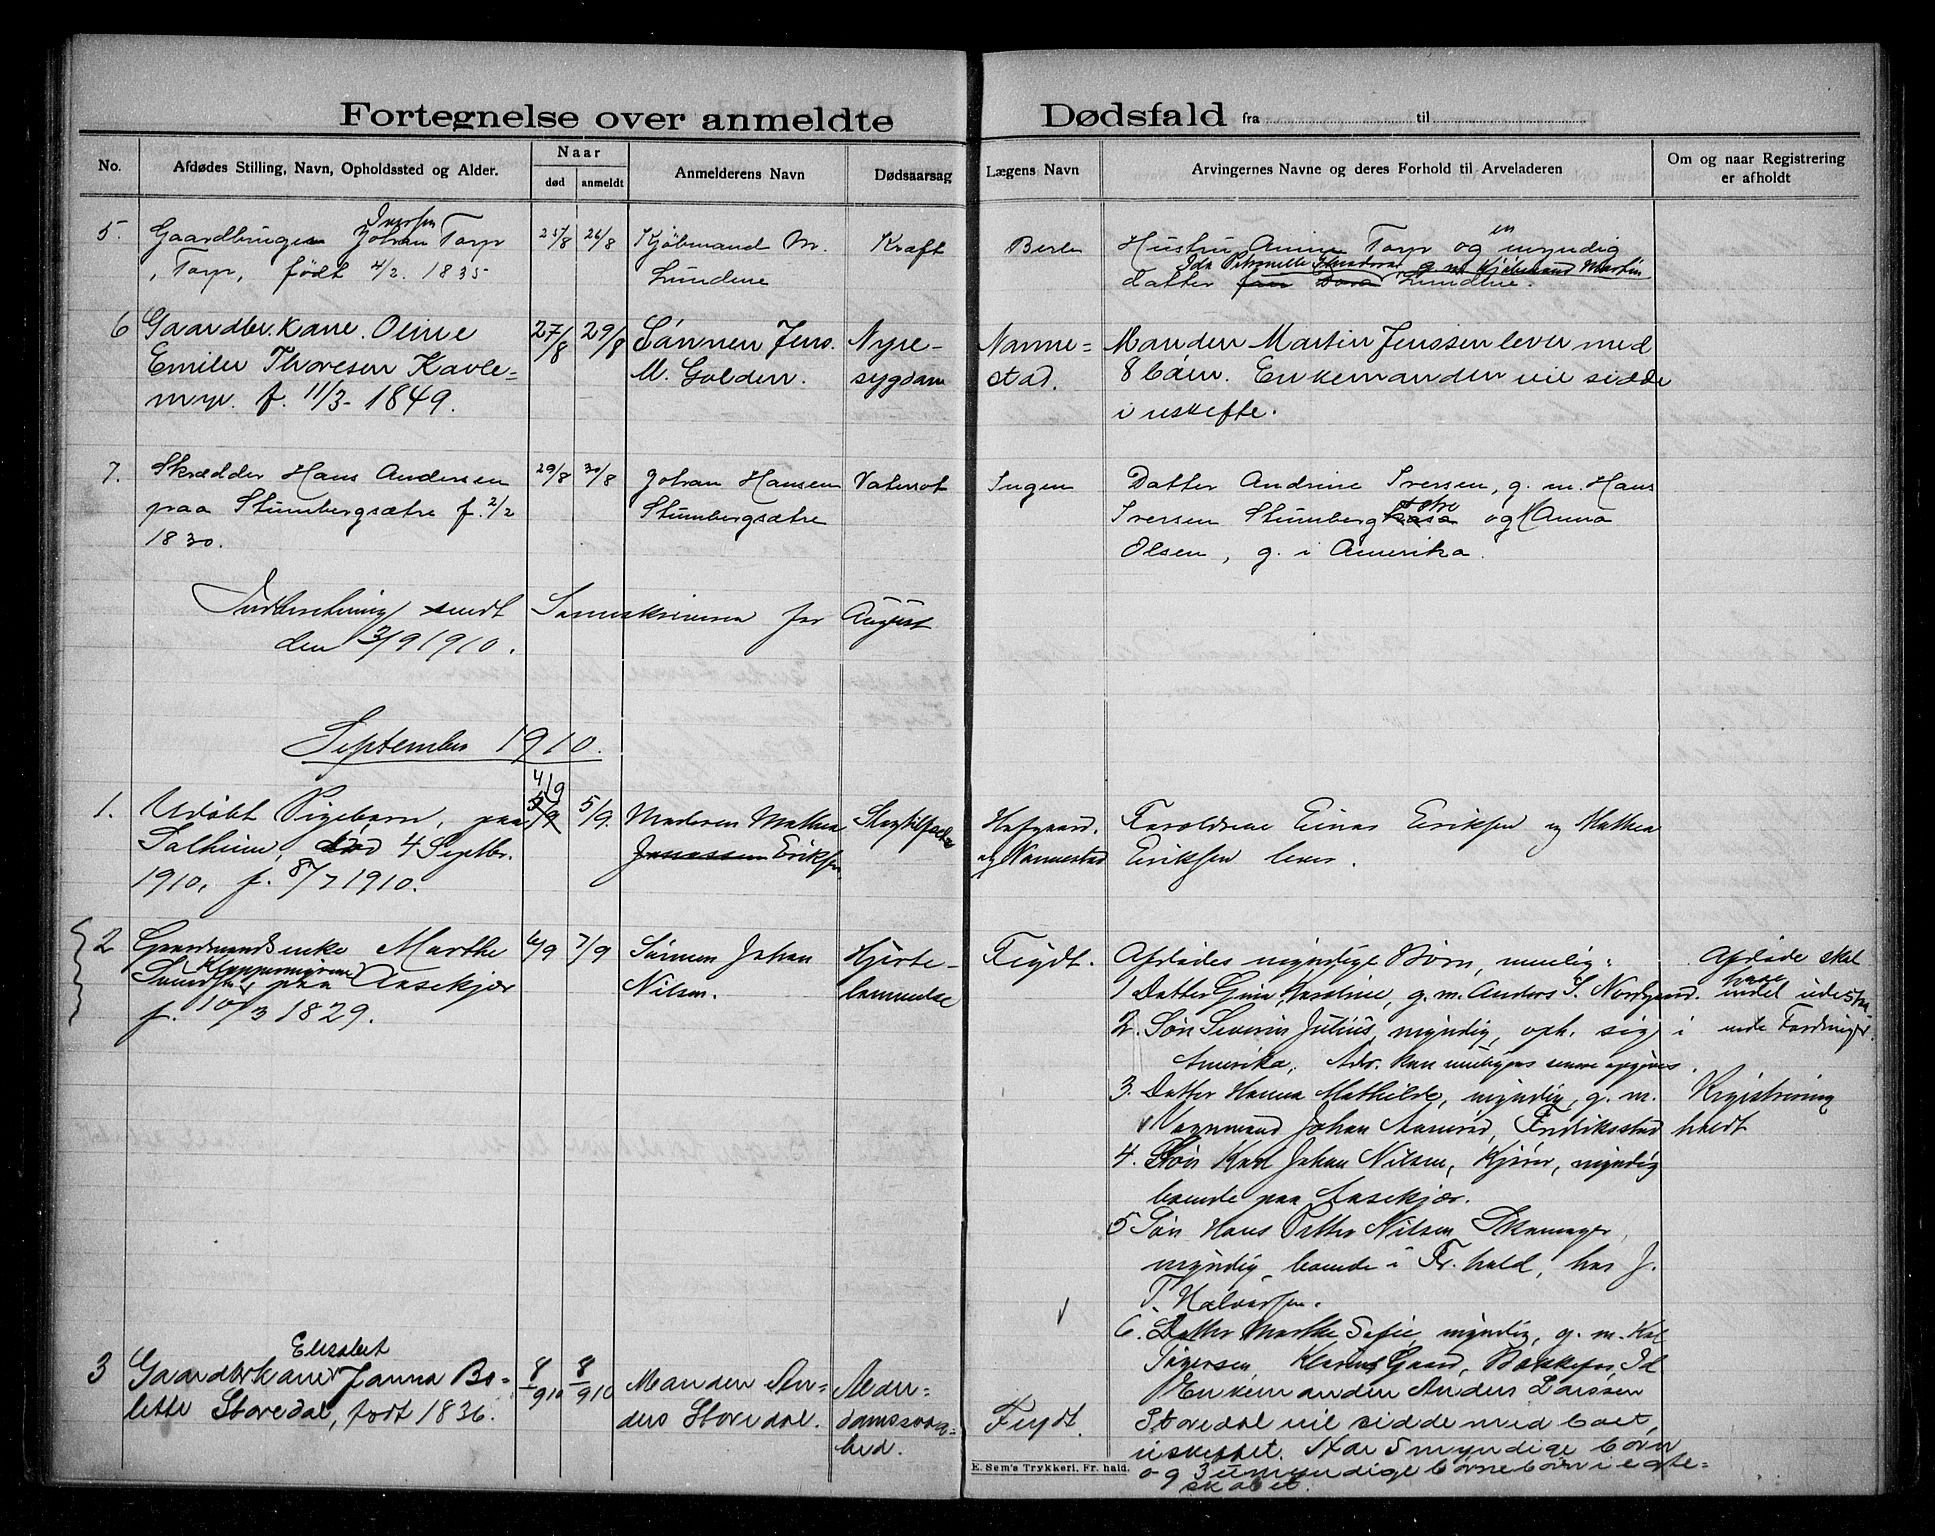 Fortegnelse over anmeldte Dødsfald fra til
No.
Afdødes Stilling, Navn, Opholdssted og Alder.
Naar
død
anmeldt
Anmelderens Navn
Dødsaarsag
Lægens Navn
Arvingernes Navne og deres Forhold til Arveladeren
Om og naar Registrering
er afholdt
5.
Iversen
Gaardbruger Johan Torp
, Torp, født 4/2. 1835
25/8
26/8
Kjøbmand M.
Lundene
Kræft
Berle
en
Hustru Anine Torp og myndig
Ida Petronelle g. m. Kjøbmand Martin
datter Lundene.
6
Gaardbr. kone Oline
Emilie Thoresen Kavle=
myr. f. 11/3- 1849.
27/8
29/8
Sønnen Jens
M. Golden.
Nyre-
sygdom
Nanne=
stad.
Manden Martin Jenssen lever med
8 børn. Enkemanden vil sidde
i uskifte.
7.
Skrædder Hans Andersen
paa Stumbergsætre f. 2/2
1830.
29/8
30/8
Johan Hansen
Stumbergsætre
Vatersot
Ingen
Datter Andrine Iversen, g. m. Hans
Iversen Stumberg og Hanna
Olsen, g. i Amerika.
Indberetning sendt Sorenskriveren for August
den 3/9 1910.
September 1910.
1.
Udøbt Pigebarn, paa
Solheim, død 4 Septbr.
1910, f. 8/7 1910.
4/9
5/9
5/9.
Moderen Mathea
Jonassen Eriksen
Hofgaard.
og Nannestad
Forældrene Einar Eriksen og Mathea
Eriksen lever.
2
Gaardmandsenke Marthe
Kloppemyren
paa Aasekjær
f. 10/3 1829.
6/9
7/9
Sønnen Johan
Nilsen.
Hjerte-
lammelse
Feydt.
Afdødes myndige Børn, nemlig:
1 Datter Gina Karoline, g. m. Anders S. Nordgaard.
2. Søn Severin Julius, myndig, oph. sig i
Amerika, Adr. kan muligens senere opgives.
3. Datter Hanna Mathilde, myndig, g. m.
Vognmand Johan Aamrød, Fredriksstad
4. Søn Karl Johan Nilsen, Kjører, myndig
boende paa Aasekjær.
5 Søn Hans Petter Nilsen Skomager,
myndig boende i Fr. hald, hos J.
T. Halvorsen.
6. Datter Marthe Sofie, myndig, g. m. Karl
Afdøde skal
have
endel udestaa-
ende Fordringer.
Registrering
holdt
3
Elisabet
Gaardbrkone Janna Bo-
lette Storedal, født 1836.
8/9 10
8/9 10
Manden An-
ders Storedal.
Alder-
domssvag=
hed.
Feydt.
Enkemanden Anders Larssen
Storedal vil sidde med boet
uskiftet. Har 5 myndige børn
og 3 umyndige børnebørn i ægte=
skabet.
E. Sem's Trykkeri, Fr. hald.